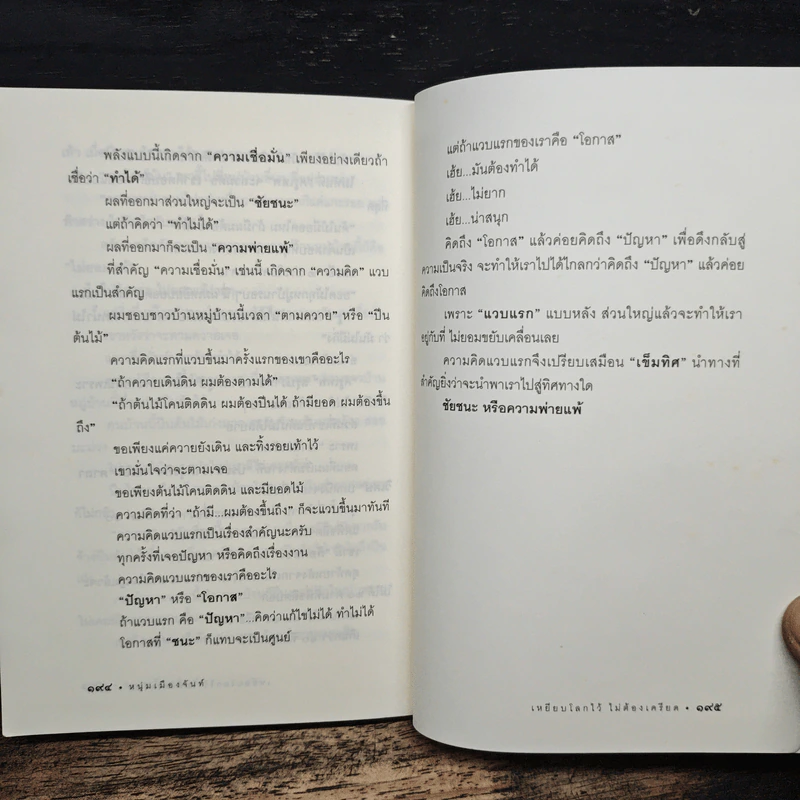 พลังแบบนี้เกิดจาก “ความเชื่อมั่น” เพียงอย่างเดียวถ้า
เชื่อว่า “ทำได้”
ผลที่ออกมาส่วนใหญ่จะเป็น “ชัยชนะ”
แต่ถ้าคิดว่า “ทำไม่ได้”
ผลที่ออกมาก็จะเป็น “ความพ่ายแพ้”
ที่สำคัญ “ความเชื่อมั่น” เช่นนี้ เกิดจาก “ความคิด” แวบ
แรกเป็นสำคัญ
ผมชอบชาวบ้านหมู่บ้านนี้เวลา “ตามควาย” หรือ “ปีน
ต้นไม้”
ความคิดแรกที่แวบขึ้นมาครั้งแรกของเขาคืออะไร
“ถ้าควายเดินดิน ผมต้องตามได้”
“ถ้าต้นไม้โคนติดดิน ผมต้องปีนได้ ถ้ามียอด ผมต้องขึ้น
ถึง”
ขอเพียงแค่ควายยังเดิน และทิ้งรอยเท้าไว้
เขามั่นใจว่าจะตามเจอ
ขอเพียงต้นไม้โคนติดดิน และมียอดไม้
ความคิดที่ว่า “ถ้ามี...ผมต้องขึ้นถึง” ก็จะแวบขึ้นมาทันที
ความคิดแวบแรกเป็นเรื่องสำคัญนะครับ
ทุกครั้งที่เจอปัญหา หรือคิดถึงเรื่องงาน
ความคิดแวบแรกของเราคืออะไร
“ปัญหา” หรือ “โอกาส”
ถ้าแวบแรก คือ “ปัญหา”...คิดว่าแก้ไขไม่ได้ ทำไม่ได้
โอกาสที่ “ชนะ” ก็แทบจะเป็นศูนย์
๑๙๔ • หนุ่มเมืองจันท์
แต่ถ้าแวบแรกของเราคือ “โอกาส”
เฮ้ย...มันต้องทำได้
เฮ้ย...ไม่ยาก
เฮ้ย...น่าสนุก
คิดถึง “โอกาส” แล้วค่อยคิดถึง “ปัญหา” เพื่อดึงกลับสู่
ความเป็นจริง จะทำให้เราไปได้ไกลกว่าคิดถึง “ปัญหา” แล้วค่อย
คิดถึงโอกาส
เพราะ “แวบแรก” แบบหลัง ส่วนใหญ่แล้วจะทำให้เรา
อยู่กับที่ ไม่ยอมขยับเคลื่อนเลย
ความคิดแวบแรกจึงเปรียบเสมือน “เข็มทิศ” นำทางที่
สำคัญยิ่งว่าจะนำพาเราไปสู่ทิศทางใด
ชัยชนะ หรือความพ่ายแพ้
เหยียบโลกไว้ ไม่ต้องเครียด • ๑๙๕